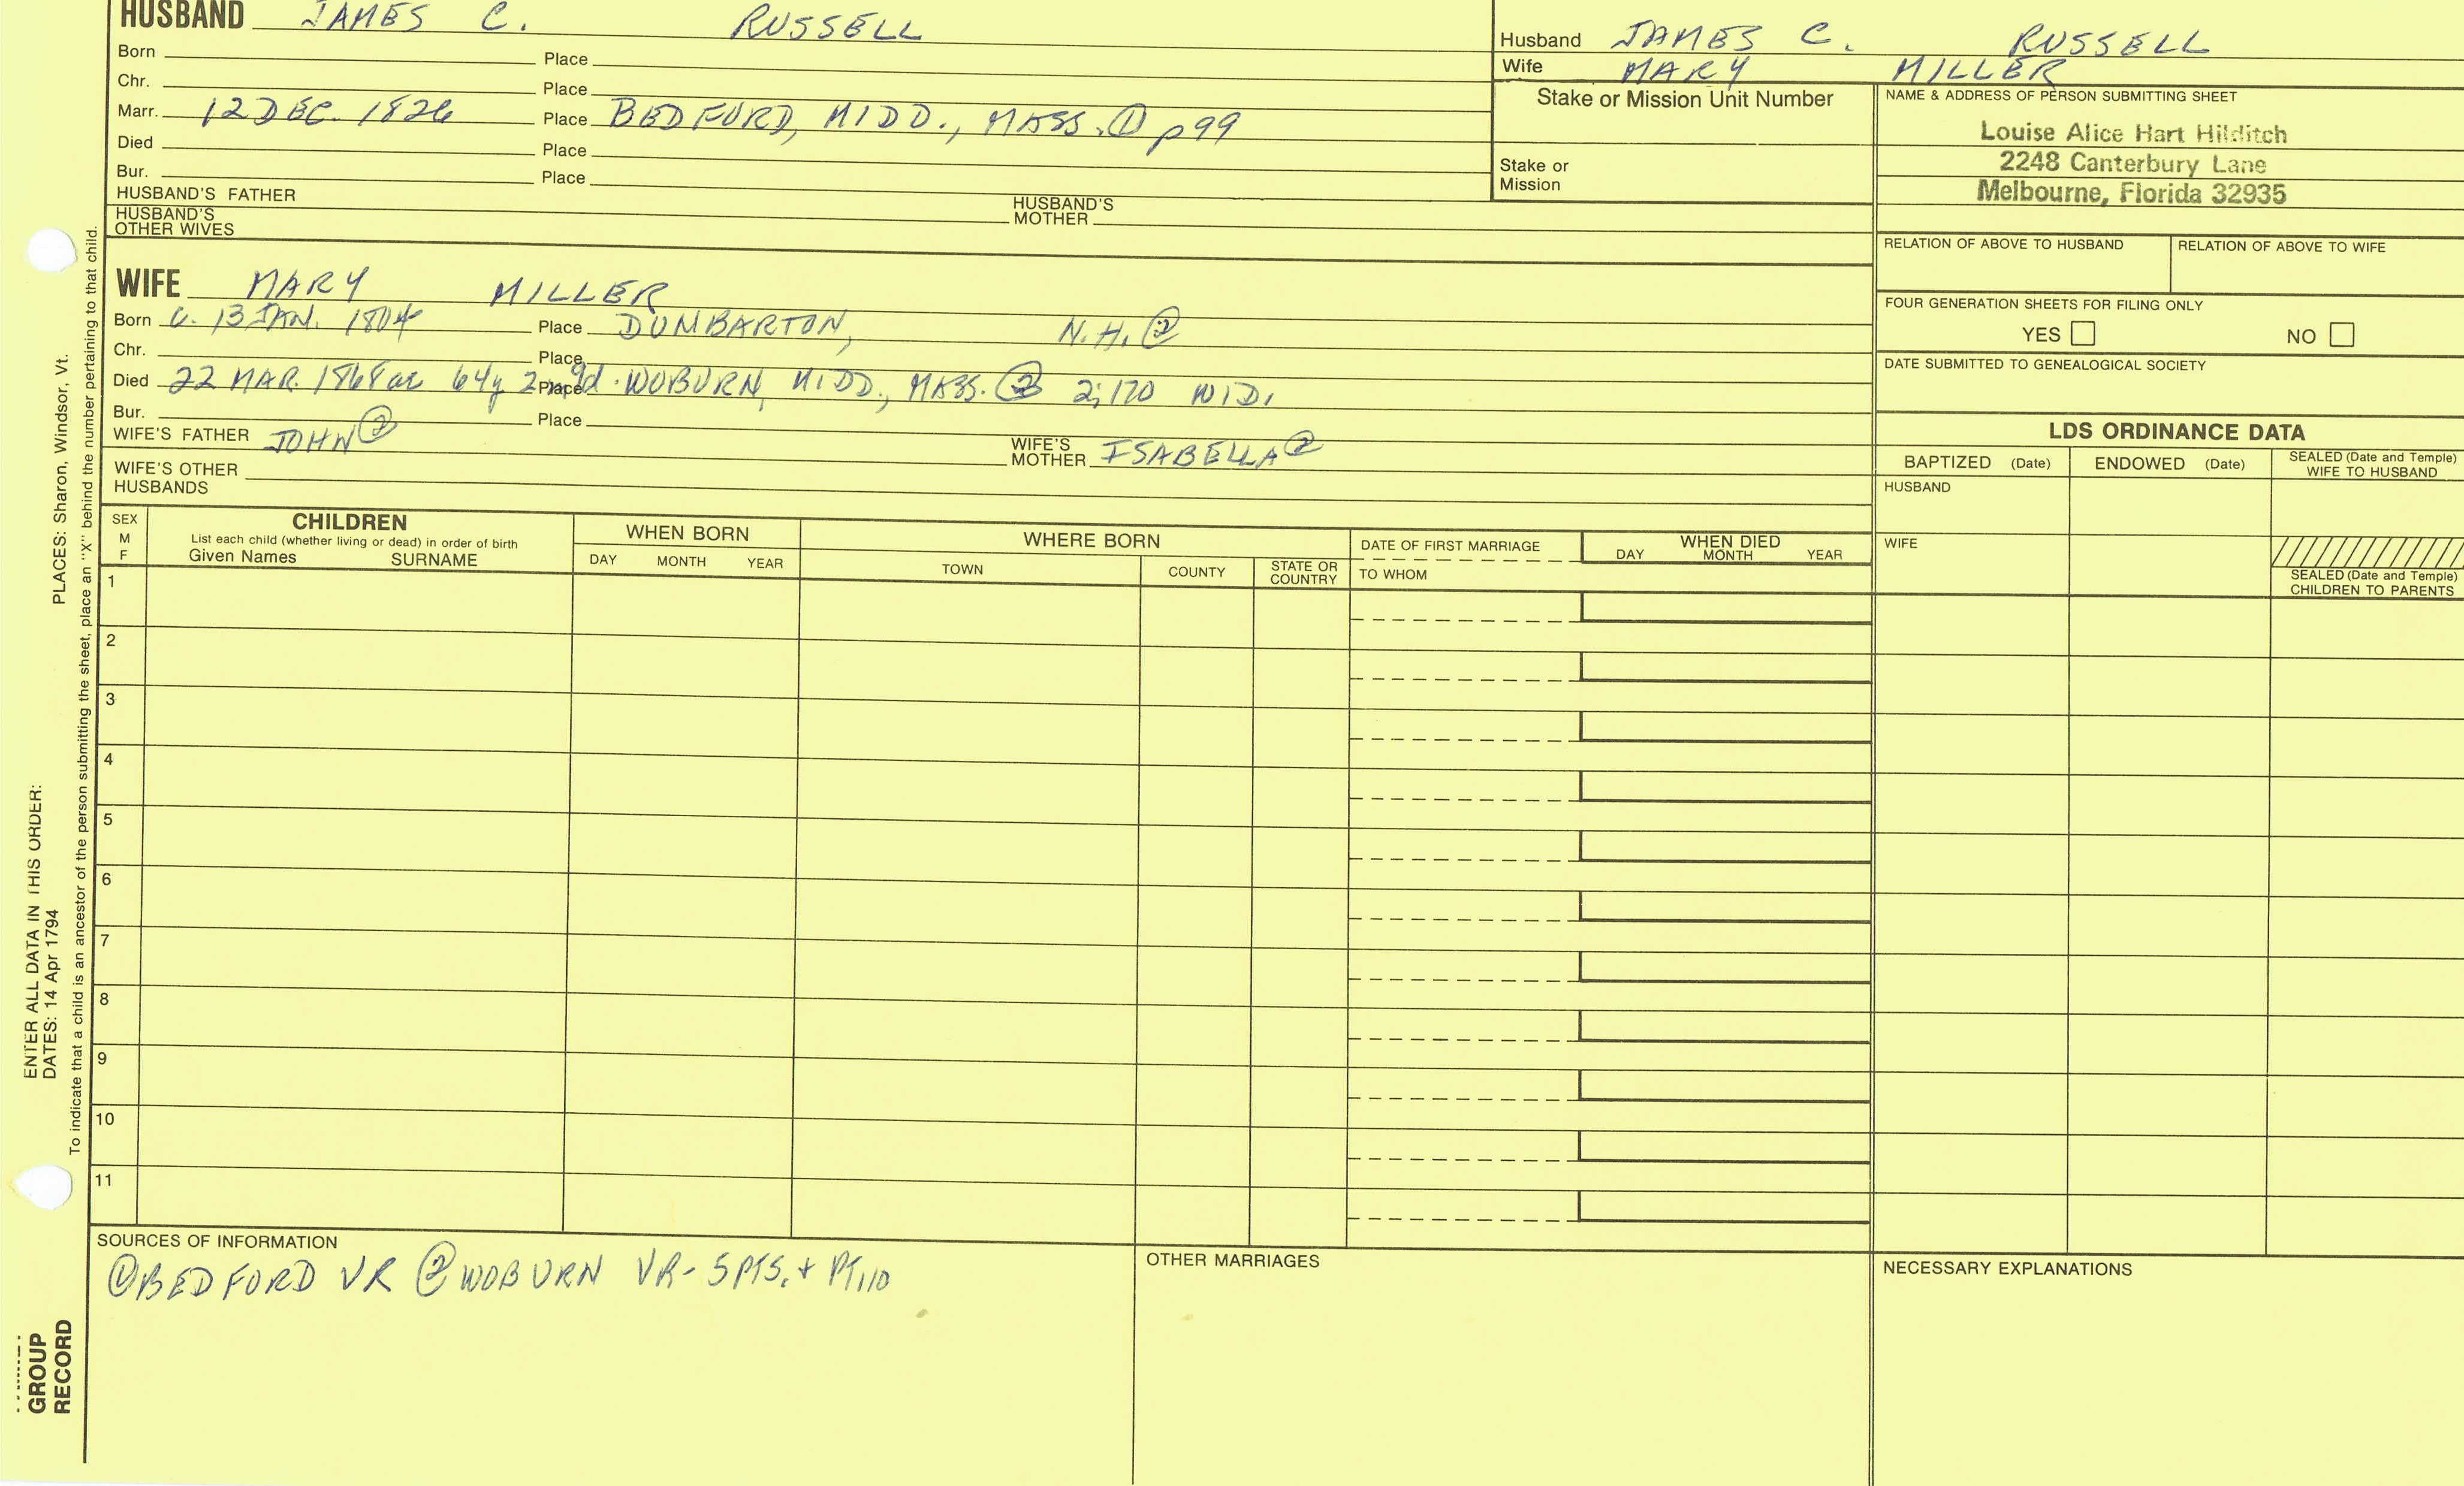 HUSBAND JAMES C. RUSSELL
Born Place
Chr. Place
Marr. 12 DEC. 1826 Place BEDFORD, MIDD., MASS. ① p99
Died Place
Bur. Place
HUSBAND'S FATHER HUSBAND'S MOTHER
HUSBAND'S OTHER WIVES
Husband JAMES C. RUSSELL
Wife MARY MILLER
Stake or Mission Unit Number
Stake or Mission
NAME & ADDRESS OF PERSON SUBMITTING SHEET
Louise Alice Hart Hilditch
2248 Canterbury Lane
Melbourne, Florida 32935
RELATION OF ABOVE TO HUSBAND RELATION OF ABOVE TO WIFE
FOUR GENERATION SHEETS FOR FILING ONLY
YES NO
DATE SUBMITTED TO GENEALOGICAL SOCIETY
WIFE MARY MILLER
Born c. 13 JAN. 1804 Place DUMBARTON, N.H. ②
Chr. Place
Died 22 MAR. 1868 ae 64y 2m 9d. Place WOBURN, MIDD., MASS. ② 2;170 WID.
Bur. Place
WIFE'S FATHER JOHN ② WIFE'S MOTHER ISABELLA ②
WIFE'S OTHER HUSBANDS
LDS ORDINANCE DATA
BAPTIZED (Date) ENDOWED (Date) SEALED (Date and Temple) WIFE TO HUSBAND
HUSBAND
WIFE
SEALED (Date and Temple) CHILDREN TO PARENTS
SEX M F
CHILDREN
List each child (whether living or dead) in order of birth
Given Names SURNAME
WHEN BORN
DAY MONTH YEAR
WHERE BORN
TOWN COUNTY STATE OR COUNTRY
DATE OF FIRST MARRIAGE
TO WHOM
WHEN DIED
DAY MONTH YEAR
1
2
3
4
5
6
7
8
9
10
11
SOURCES OF INFORMATION
① BEDFORD VR ② WOBURN VR- 5 PTS. + PT.10
OTHER MARRIAGES
NECESSARY EXPLANATIONS
ENTER ALL DATA IN THIS ORDER:
DATES: 14 Apr 1794 PLACES: Sharon, Windsor, Vt.
To indicate that a child is an ancestor of the person submitting the sheet, place an "X" behind the number pertaining to that child.
GROUP
RECORD